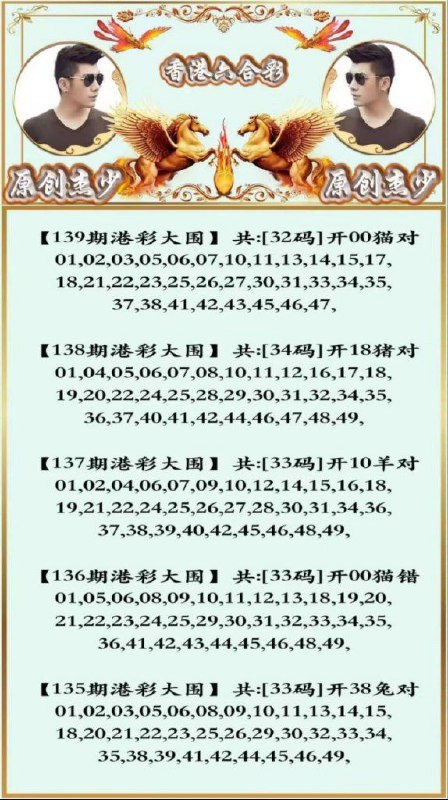 香港六合彩
原创杰少
原创杰少
【139期港彩大围】 共:[32码]开00猫对
01,02,03,05,06,07,10,11,13,14,15,17,
18,21,22,23,25,26,27,30,31,33,34,35,
37,38,41,42,43,45,46,47,
【138期港彩大围】 共:[34码]开18猪对
01,04,05,06,07,08,10,11,12,16,17,18,
19,20,22,24,25,28,29,30,31,32,34,35,
36,37,40,41,42,44,46,47,48,49,
【137期港彩大围】 共:[33码]开10羊对
01,02,04,06,07,09,10,12,14,15,16,18,
19,21,22,24,25,26,27,28,30,31,34,36,
37,38,39,40,42,45,46,48,49,
【136期港彩大围】 共:[33码]开00猫错
01,05,06,08,09,10,11,12,13,18,19,20,
21,22,23,24,25,29,30,31,32,33,34,35,
36,41,42,43,44,45,46,48,49,
【135期港彩大围】 共:[33码]开38兔对
01,02,03,05,06,08,09,10,11,13,14,15,
18,20,21,22,23,25,26,29,30,32,33,34,
35,38,39,41,42,44,45,46,49,